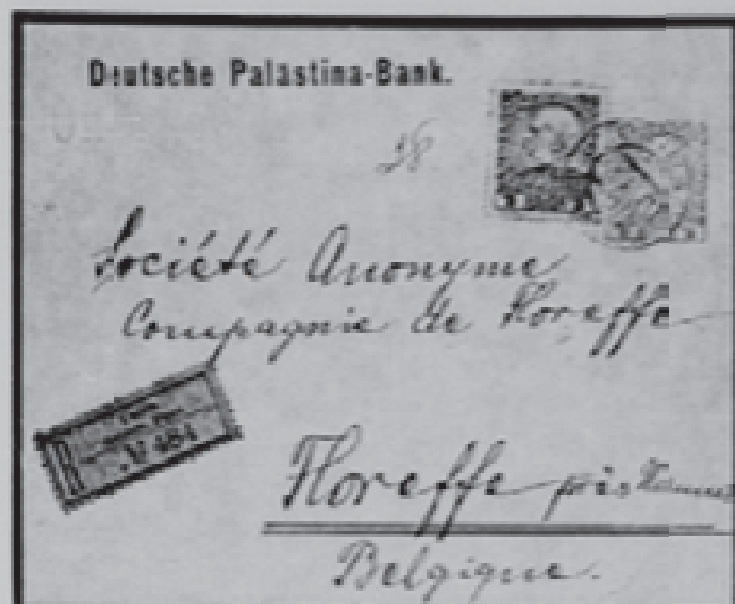 Deutsche Palästina-Bank.
28
Société Anonyme
Compagnie de Floreffe
Nº 484
Floreffe
Belgique.